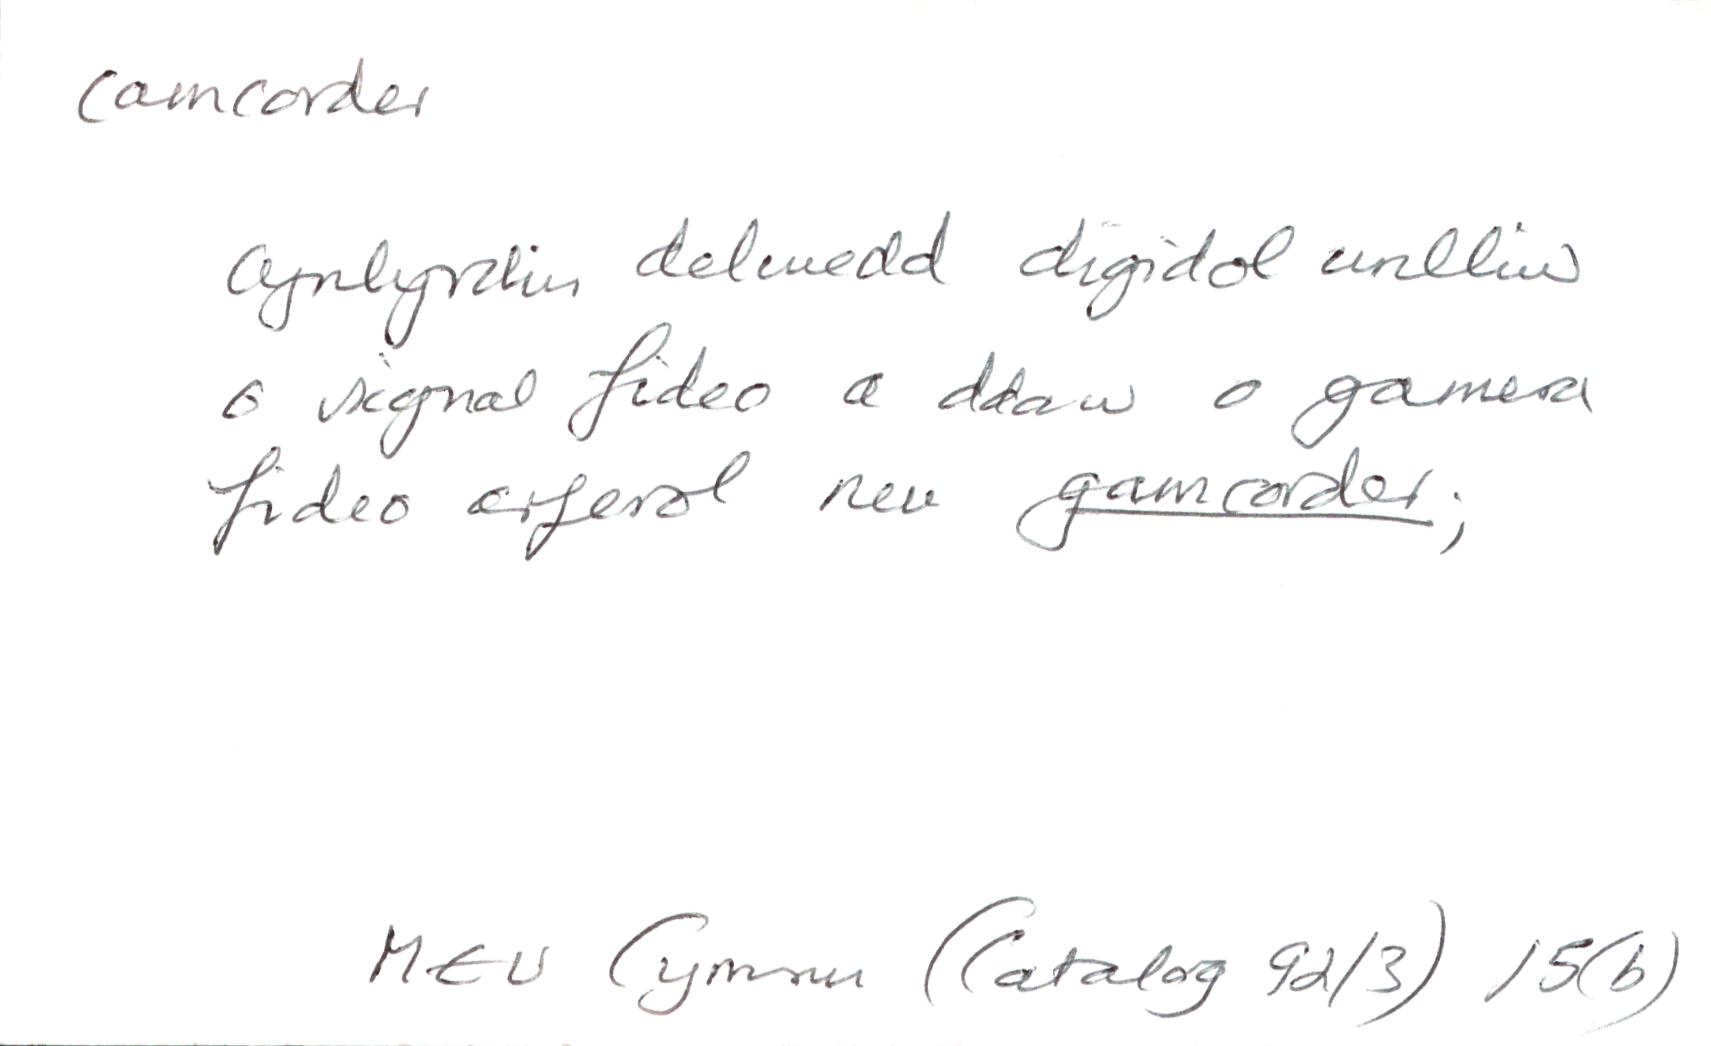 camcorder
Cynhyrchir delwedd digidol unlliw
o signal fideo a ddaw o gamera
fideo arferol neu gamcorder;
MEU Cymru (Catalog 92/3) 15(b)